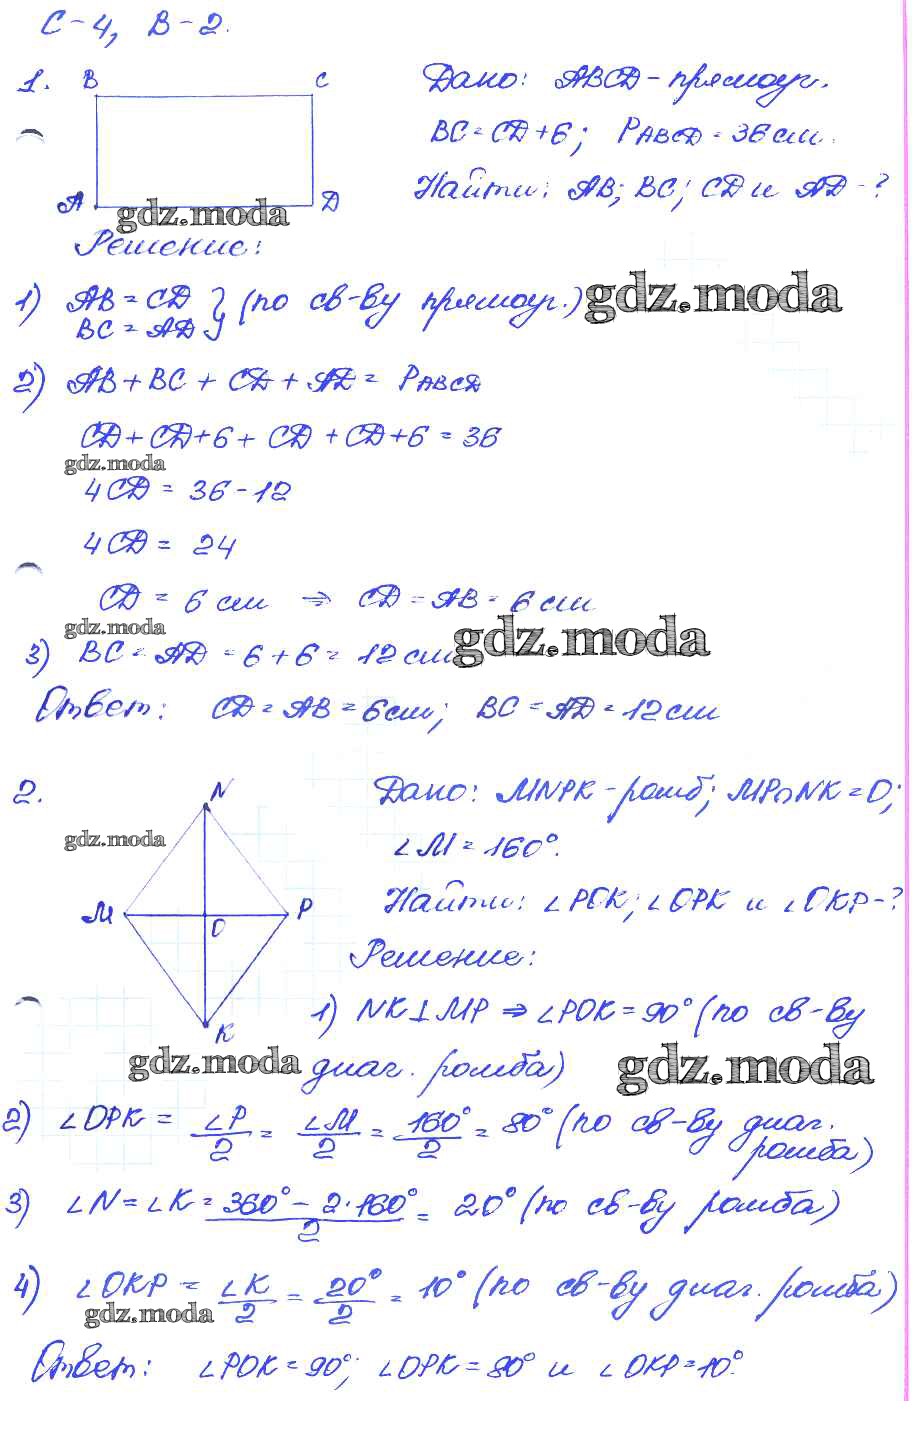 С-4, В-2.
1. B C
A D
Дано: ABCD - прямоуг.
BC = CD + 6; PABCD = 36 см.
Найти: AB; BC; CD и AD - ?
gdz.moda
Решение:
1) AB = CD
BC = AD } (по св-ву прямоуг.)
gdz.moda
2) AB + BC + CD + AD = PABCD
CD + CD + 6 + CD + CD + 6 = 36
gdz.moda
4CD = 36 - 12
4CD = 24
CD = 6 см ⇒ CD = AB = 6 см
gdz.moda
gdz.moda
3) BC = AD = 6 + 6 = 12 см
Ответ: CD = AB = 6 см; BC = AD = 12 см
2. N
M O P
K
gdz.moda
Дано: MNPK - ромб; MP∩NK = O;
∠M = 160°.
Найти: ∠POK; ∠OPK и ∠OKP - ?
Решение:
1) NK ⊥ MP ⇒ ∠POK = 90° (по св-ву
диаг. ромба)
gdz.moda
gdz.moda
2) ∠OPK = ∠P/2 = ∠M/2 = 160°/2 = 80° (по св-ву диаг.
ромба)
3) ∠N = ∠K = 360° - 2·160°/2 = 20° (по св-ву ромба)
4) ∠OKP = ∠K/2 = 20°/2 = 10° (по св-ву диаг. ромба)
gdz.moda
Ответ: ∠POK = 90°; ∠OPK = 80° и ∠OKP = 10°.